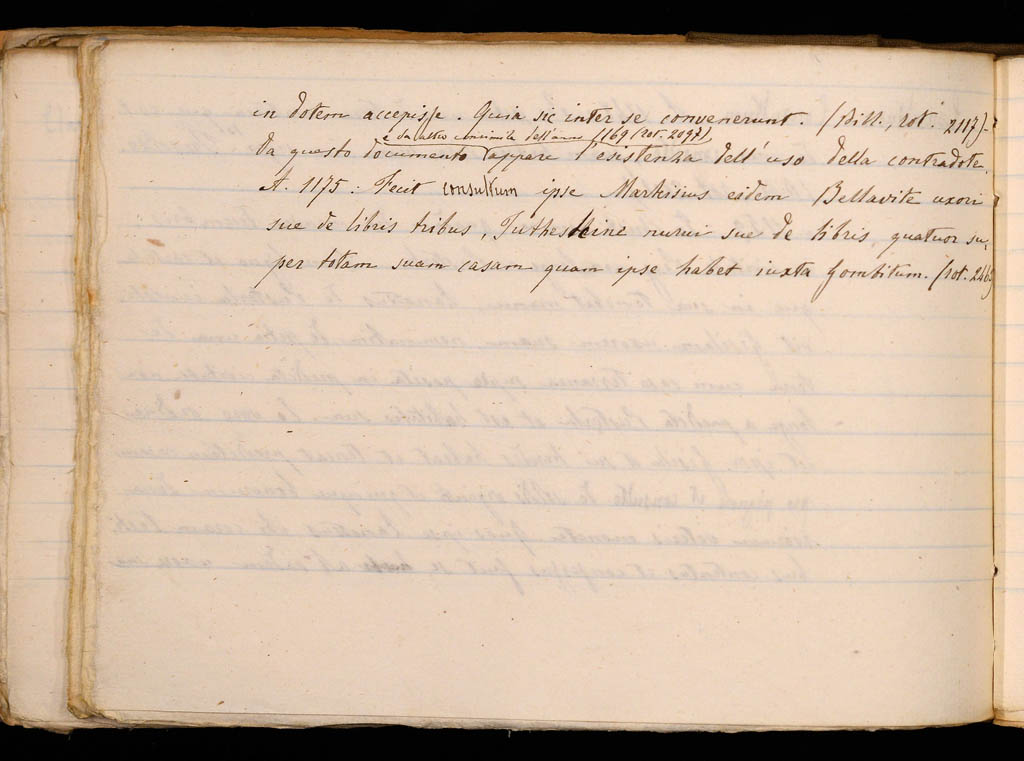 in dotem accepisse. Quia sic inter se convenerunt. (Bibl., rot. 2117)-
e da altro consimile dell'anno 1169 (rot. 2097)
Da questo documento appare l'esistenza dell'uso della contradote.
A. 1175: Fecit consultum ipse Markisius eidem Bellavite uxori
sue de libris tribus, nurui sue de libris, quatuor su-
per totam suam casam quam ipse habet iuxta Gombitum. (rot. 246)